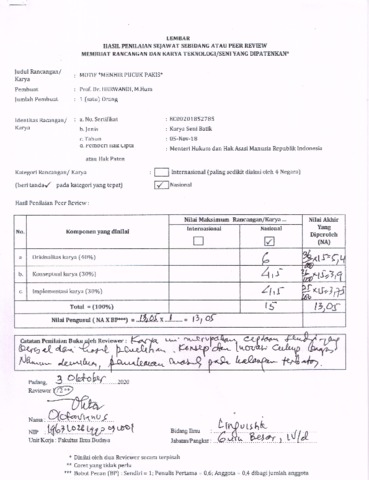 LEMBAR
HASIL PENILAIAN SEJAWAT SEBIDANG ATAU PEER REVIEW
MEMBUAT RANCANGAN DAN KARYA TEKNOLOGI/SENI YANG DIPATENKAN*
Judul Rancangan/ Karya : MOTIF "MENHIR PUCUK PAKIS"
Pembuat : Prof. Dr. HERWANDI, M.Hum
Jumlah Pembuat : 1 (satu) Orang
Identitas Racangan/ Karya : a. No. Sertifikat : EC00201852785
b. Jenis : Karya Seni Batik
c. Tahun : 05-Nov-18
d. Pemberi Hak Cipta atau Hak Paten : Menteri Hukum dan Hak Asasi Manusia Republik Indonesia
Kategori Rancangan/ Karya : Internasional (paling sedikit diakui oleh 4 Negara)
(beri tanda ✓ pada kategori yang tepat) ✓ Nasional
Hasil Penilaian Peer Review :
No. Komponen yang dinilai Nilai Maksimum Rancangan/Karya ... Nilai Akhir Yang Diperoleh (NA)
Internasional Nasional
✓
a Orisinalitas karya (40%) 6
b. Konseptual karya (30%) 4,5
c. Implementasi karya (30%) 4,5
Total = (100%) 15 13,05
Nilai Pengusul ( NA X BP***) = 13,05 x 1 = 13,05
Catatan Penilaian Buku oleh Reviewer : Karya ini merupakan ciptaan
dan hasil penelitian. Konsep dan inovasi cukup
Namun demikian, pada kalangan terbatas.
Padang, 3 Oktober 2020
Reviewer
Nama : Oktavianus
NIP
Unit Kerja : Fakultas Ilmu Budaya
Bidang Ilmu : Linguistik
Jabatan/Pangkat : Guru Besar, IV/d
* Dinilai oleh dua Reviewer secara terpisah
** Coret yang tidak perlu
*** Bobot Peran (BP) : Sendiri = 1; Penulis Pertama - 0,6; Anggota - 0,4 dibagi jumlah anggota